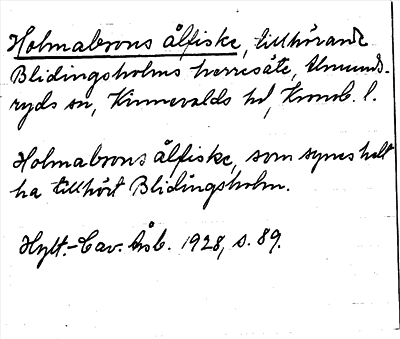 Holmabrons ålfiske, tillhörande
Blidingsholms herresäte, Urmunds-
ryds sn, Kinnevalds hd, Kronob. l.
Holmabrons ålfiske, som synes helt
ha tillhört Blidingsholm.
Hylt.-Cav. Åsb. 1928, s. 89.